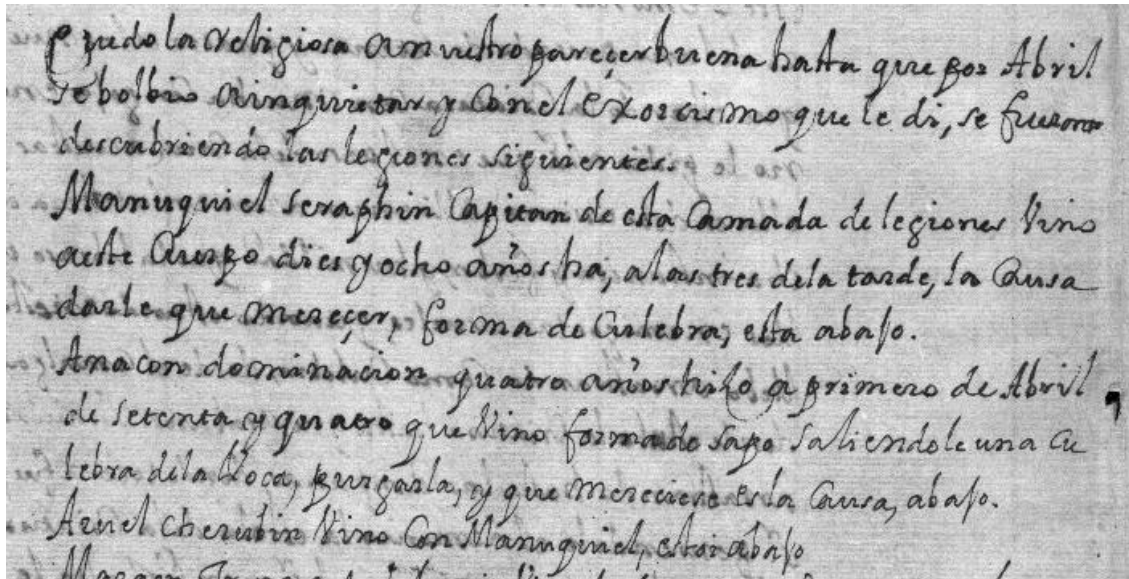 Quedo la religiosa a nuestro pareçer buena hasta que por Abril
se bolbio a inquietar y con el Exorcismo que le di, se fueron
descubriendo las legiones siguientes.
Manuquiel Seraphin Capitan de esta Camada de legiones Vino
a este Cuerpo dies y ocho años ha, a las tres de la tarde, la Causa
darle que mereçer, forma de Culebra, esta abajo.
Anacon dominacion quatro años hiso a primero de Abril
de setenta y quatro que Vino forma de sapo saliendole una cu
lebra de la Voca, purgarla, y que mereciese es la Causa, abajo.
Azuel Cherubin Vino Con Manuquiel, abajo